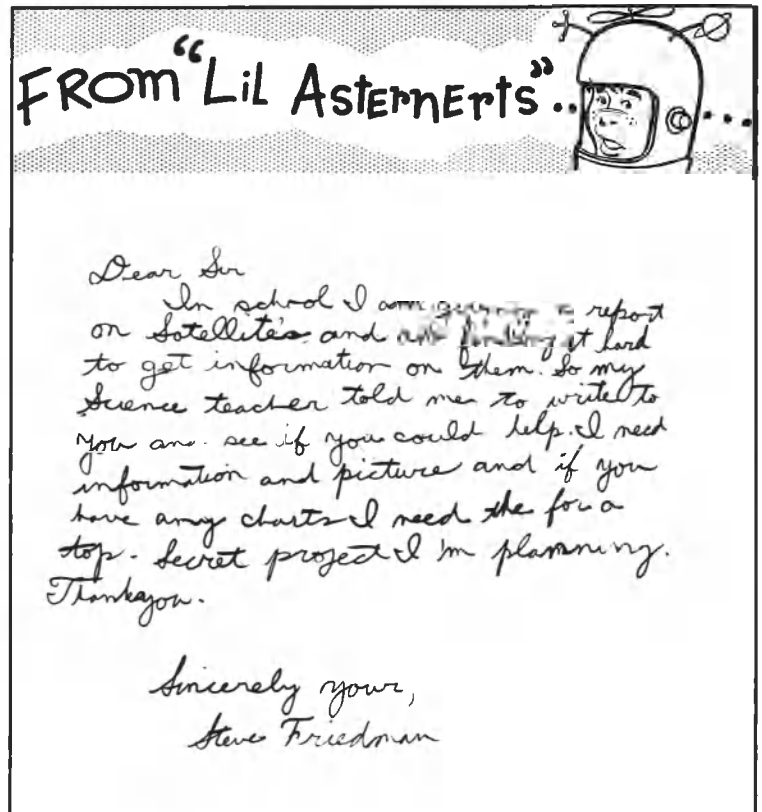 FROM "LiL AsTERnERTs"...
Dear Sir
In school I am report
on Satellite's and it hard
to get information on them. So my
Science teacher told me to write to
you and see if you could help. I need
information and picture and if you
have any charts I need the for a
top-Secret project I'm planning.
Thankyou.
Sincerely your,
Steve Friedman